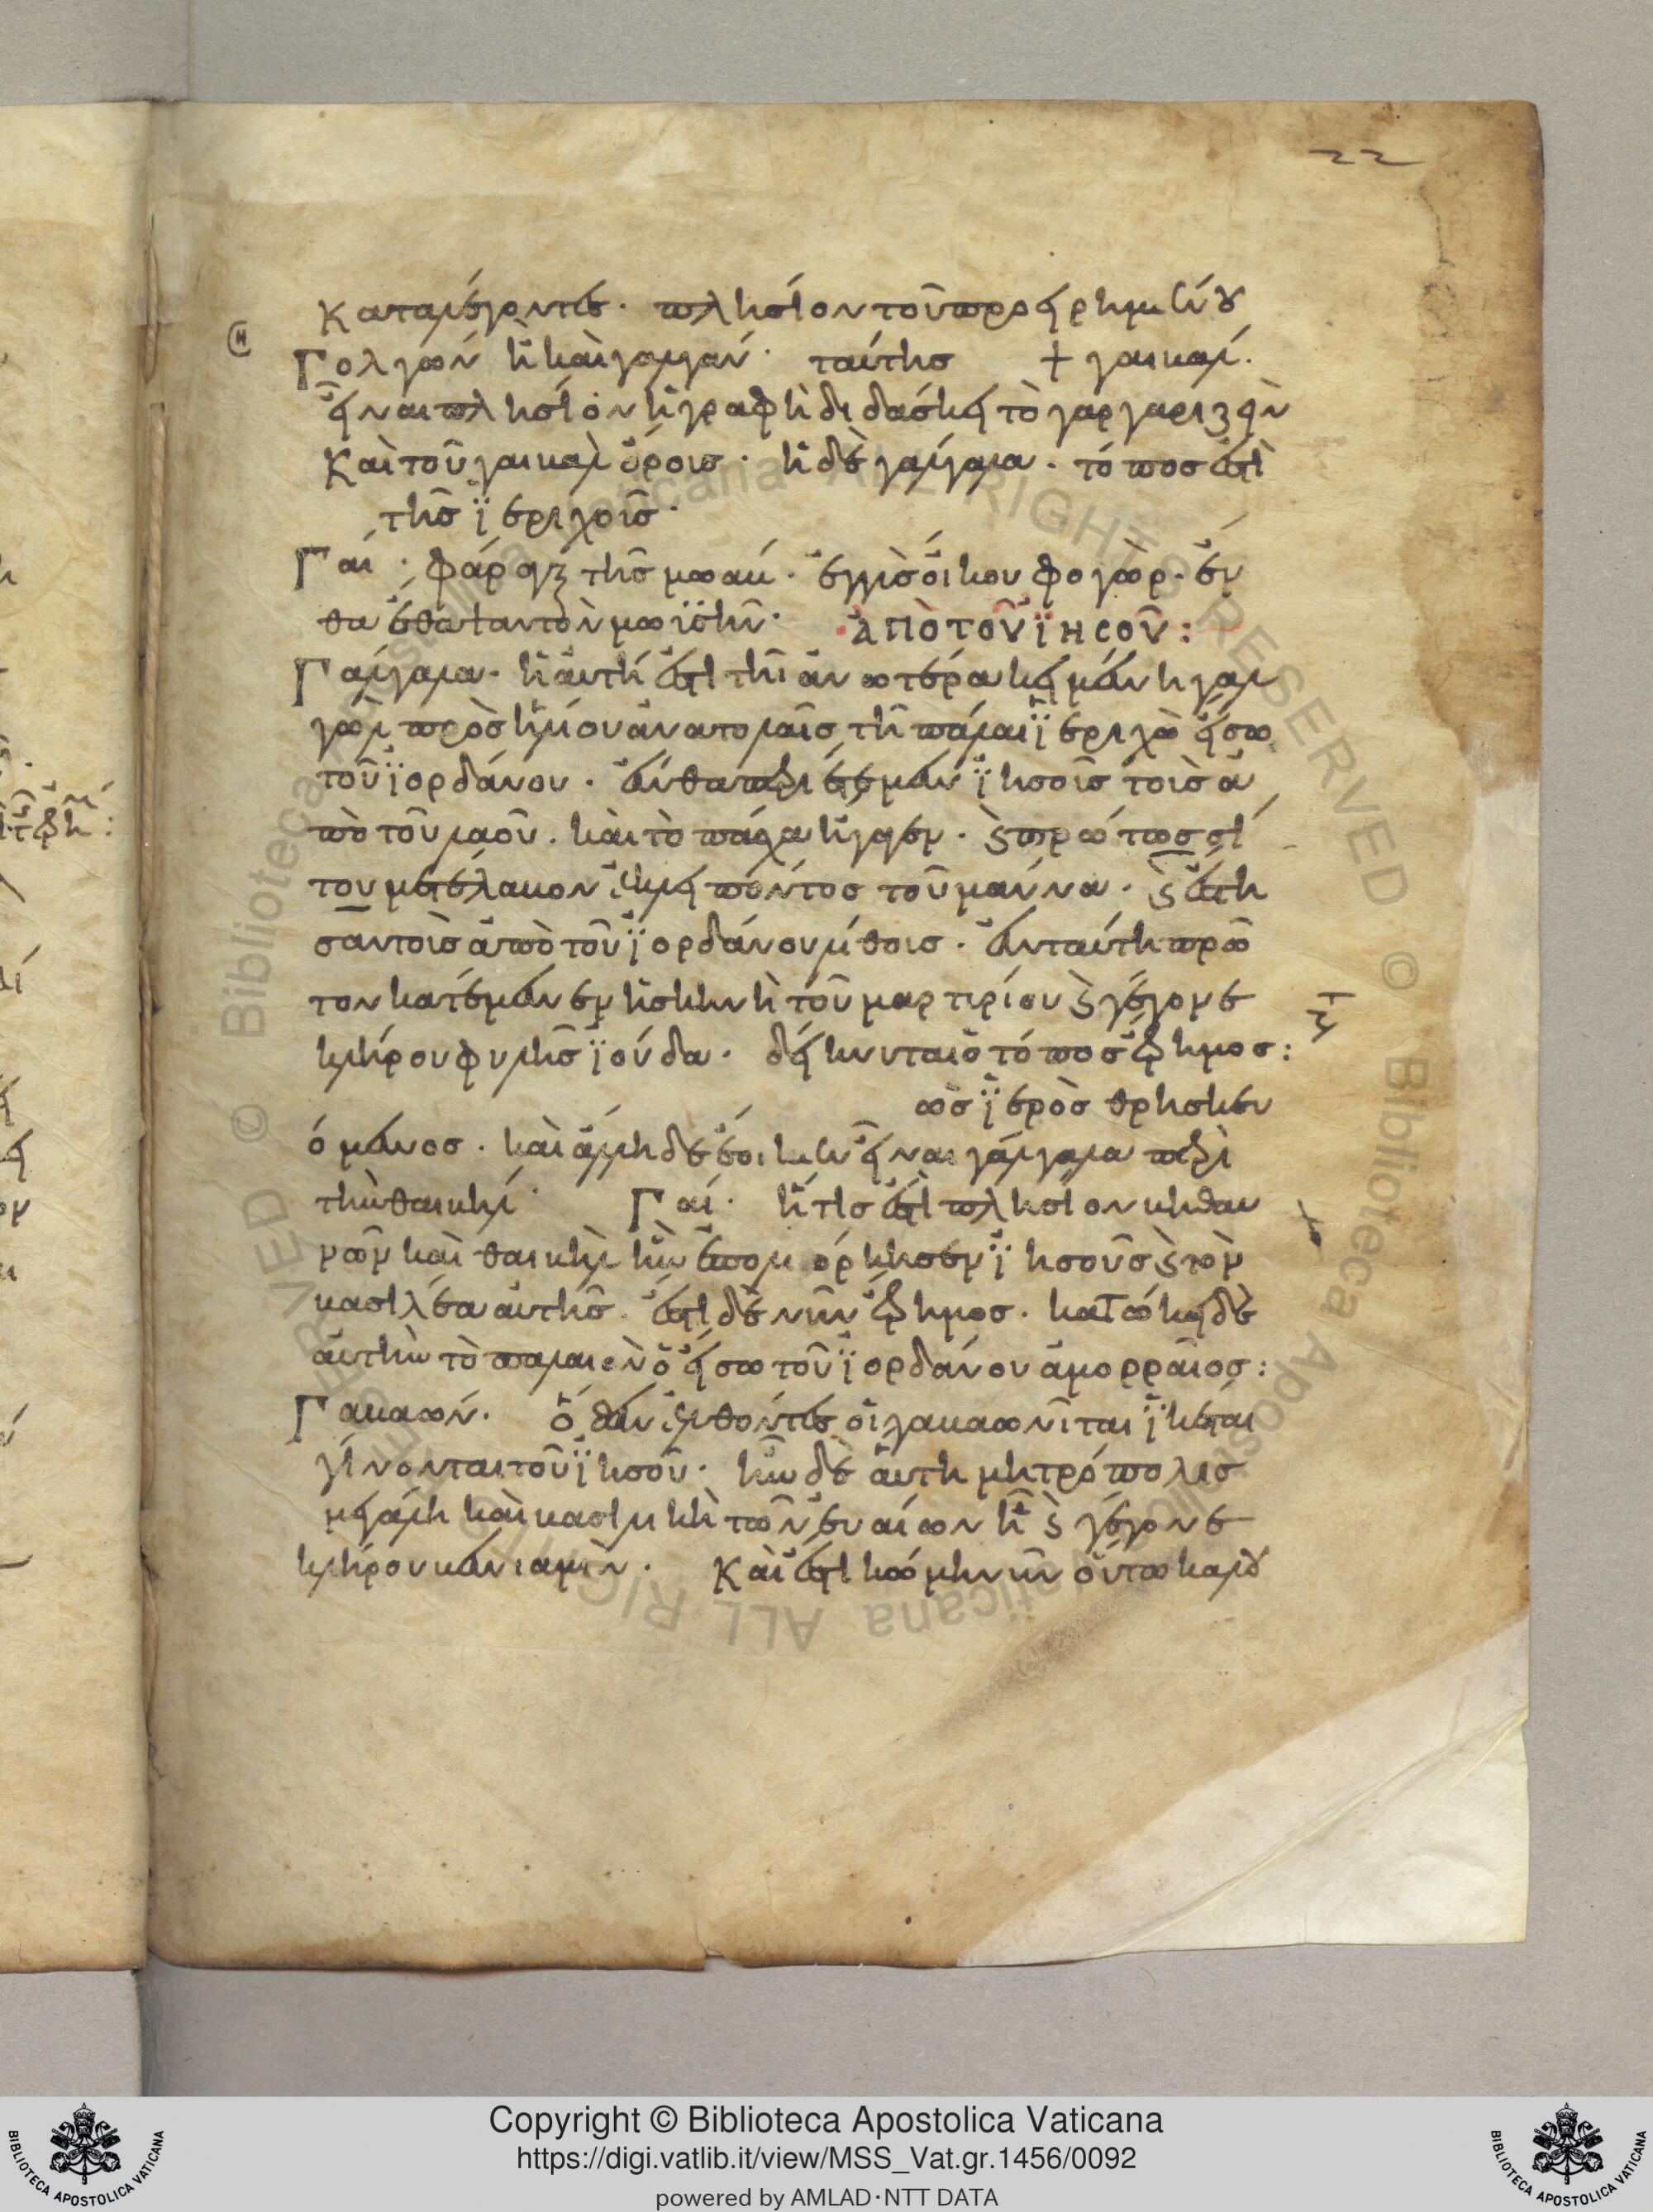 22
καταλέγοντες. πλησίον τοῦ προειρημένου
Γολγὼν ἡ καὶ γαλγάν. ταύτης + γαιβάλ.
εἶναι πλησίον ἡ γραφὴ διδάσκει τὸ γαργαριζεὶν
καὶ τοῦ γαιβὰλ ὄροις. ἡ δὲ γάλγαλα. τόπος ἐστὶ
τῆς ϊεριχοῦς.
Γαί. φάραγξ τῆς μωάβ. ἐγγὺς οἴκου φογὼρ. ἔν
θα ἔθαψαν τὸν μωϋσῆν. ἀπὸ τοῦ ϊησοῦ:
Γάλγαλα. ἡ αὐτή ἐστι τῇ ἀνωτέρα κειμένη γαλ
γὼλ πρὸς ἥλιον ἀνατολαῖς τῇ πάλαι ϊεριχὼ εἴσω
τοῦ ϊορδάνου. ἔνθα περιέτεμεν ϊησοῦς τοὺς ἀ
πὸ τοῦ λαοῦ. καὶ τὸ πάσχα ἤγαγεν. καὶ πρώτως σί
του μετέλαβον ἐκλείποντος τοῦ μάννα. καὶ ἔστη
σαν τοὺς ἀπὸ τοῦ ϊορδάνου λίθοις. ἐνταύτη πρῶ
τον κατέμενεν ἡ σκηνὴ τοῦ μαρτυρίου καὶ γέγονε
κλήρου φυλῆς ϊούδα. δείκνυται ὁ τόπος ἔρημος:
ὡς ϊερὸς θρησκευ
όμενος. καὶ ἄλλη δὲ ἐοίκεν εἶναι γάλγαλα περὶ
τὴν βαιθήλ. Γαί. ἥτις ἐστὶ πλησίον βηθαυ
νῶν καὶ βαιθὴλ ἣν ἐπολιόρκησεν ϊησοῦς καὶ τὸν
βασιλέα αὐτῆς. ἐστὶ δὲ νῦν ἔρημος. κατώκει δὲ
αὐτὴν τὸ παλαιὸν ὁ εἴσω τοῦ ϊορδάνου ἀμορραῖος:
Γαβαών. ὅθεν ἐλθόντες οἱ γαβαωνῖται ϊκέται
γίνονται τοῦ ϊησοῦ. ἦν δὲ αὕτη μητρόπολις
μεγάλη καὶ βασιλικὴ τῶν εὐαίων ἣ καὶ γέγονε
κλήρου βενιαμίν. καὶ ἐστὶ κώμη νῦν οὕτω καλου
Copyright © Biblioteca Apostolica Vaticana
https://digi.vatlib.it/view/MSS_Vat.gr.1456/0092
powered by AMLAD·NTT DATA